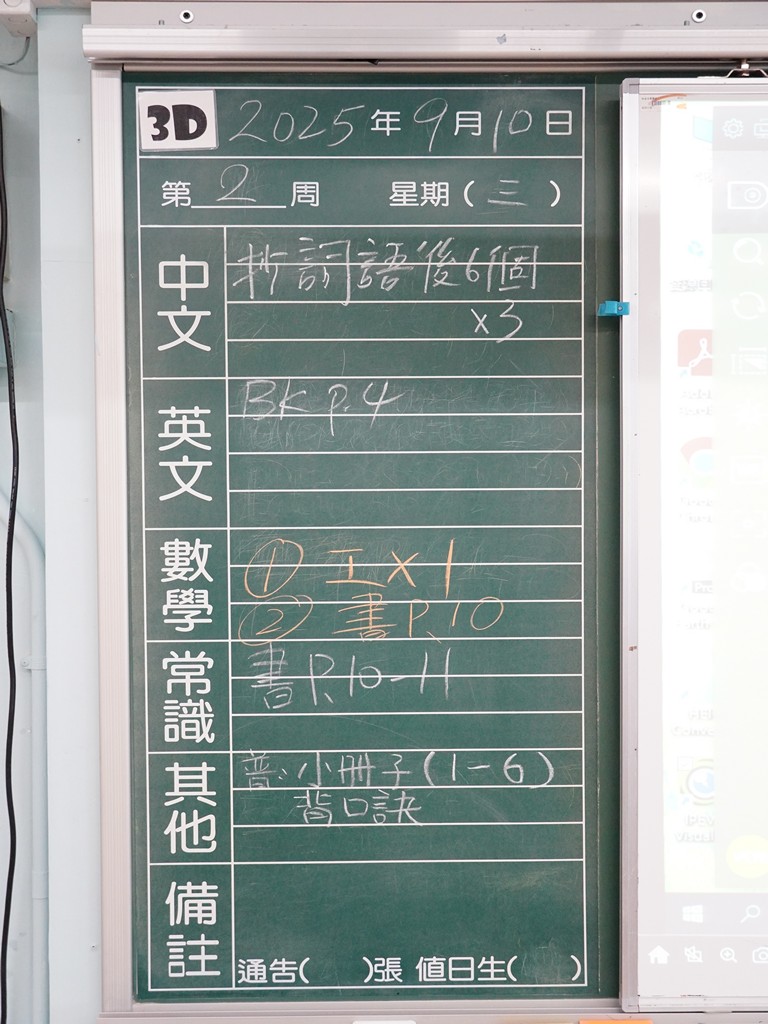 3D 2025年9月10日
第2周 星期(三)
中文
抄詞語後6個
x3
英文
BK P.4
數學
① 工x1
② 書P.10
常識
書P.10-11
其他
普:小冊子(1-6)
背口訣
備註
通告( )張 值日生( )